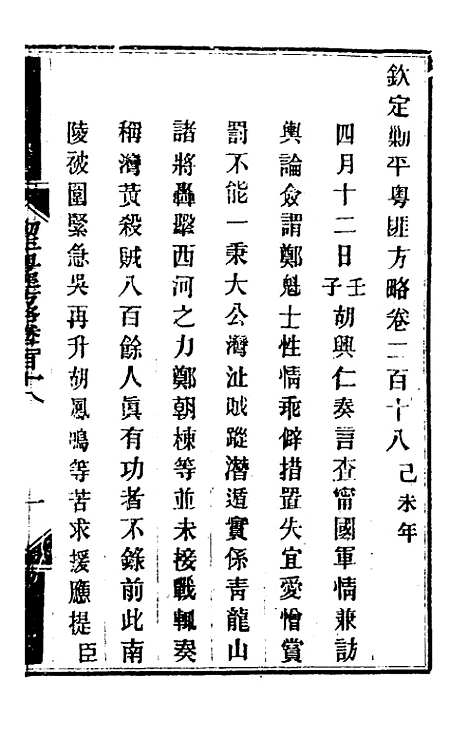 欽定勦平粵匪方略卷二百十八己未年
四月十二日壬子胡興仁奏言查甯國軍情兼訪
輿論僉謂鄭魁士性情乖僻措置失宜愛憎賞
罰不能一秉大公灣沚賊蹤潛遁實係青龍山
諸將轟擊西河之力鄭朝棟等並未接戰輒奏
稱灣黃殺賊八百餘人眞有功者不錄前此南
陵被圍緊急吳再升胡鳳鳴等苦求援應提臣